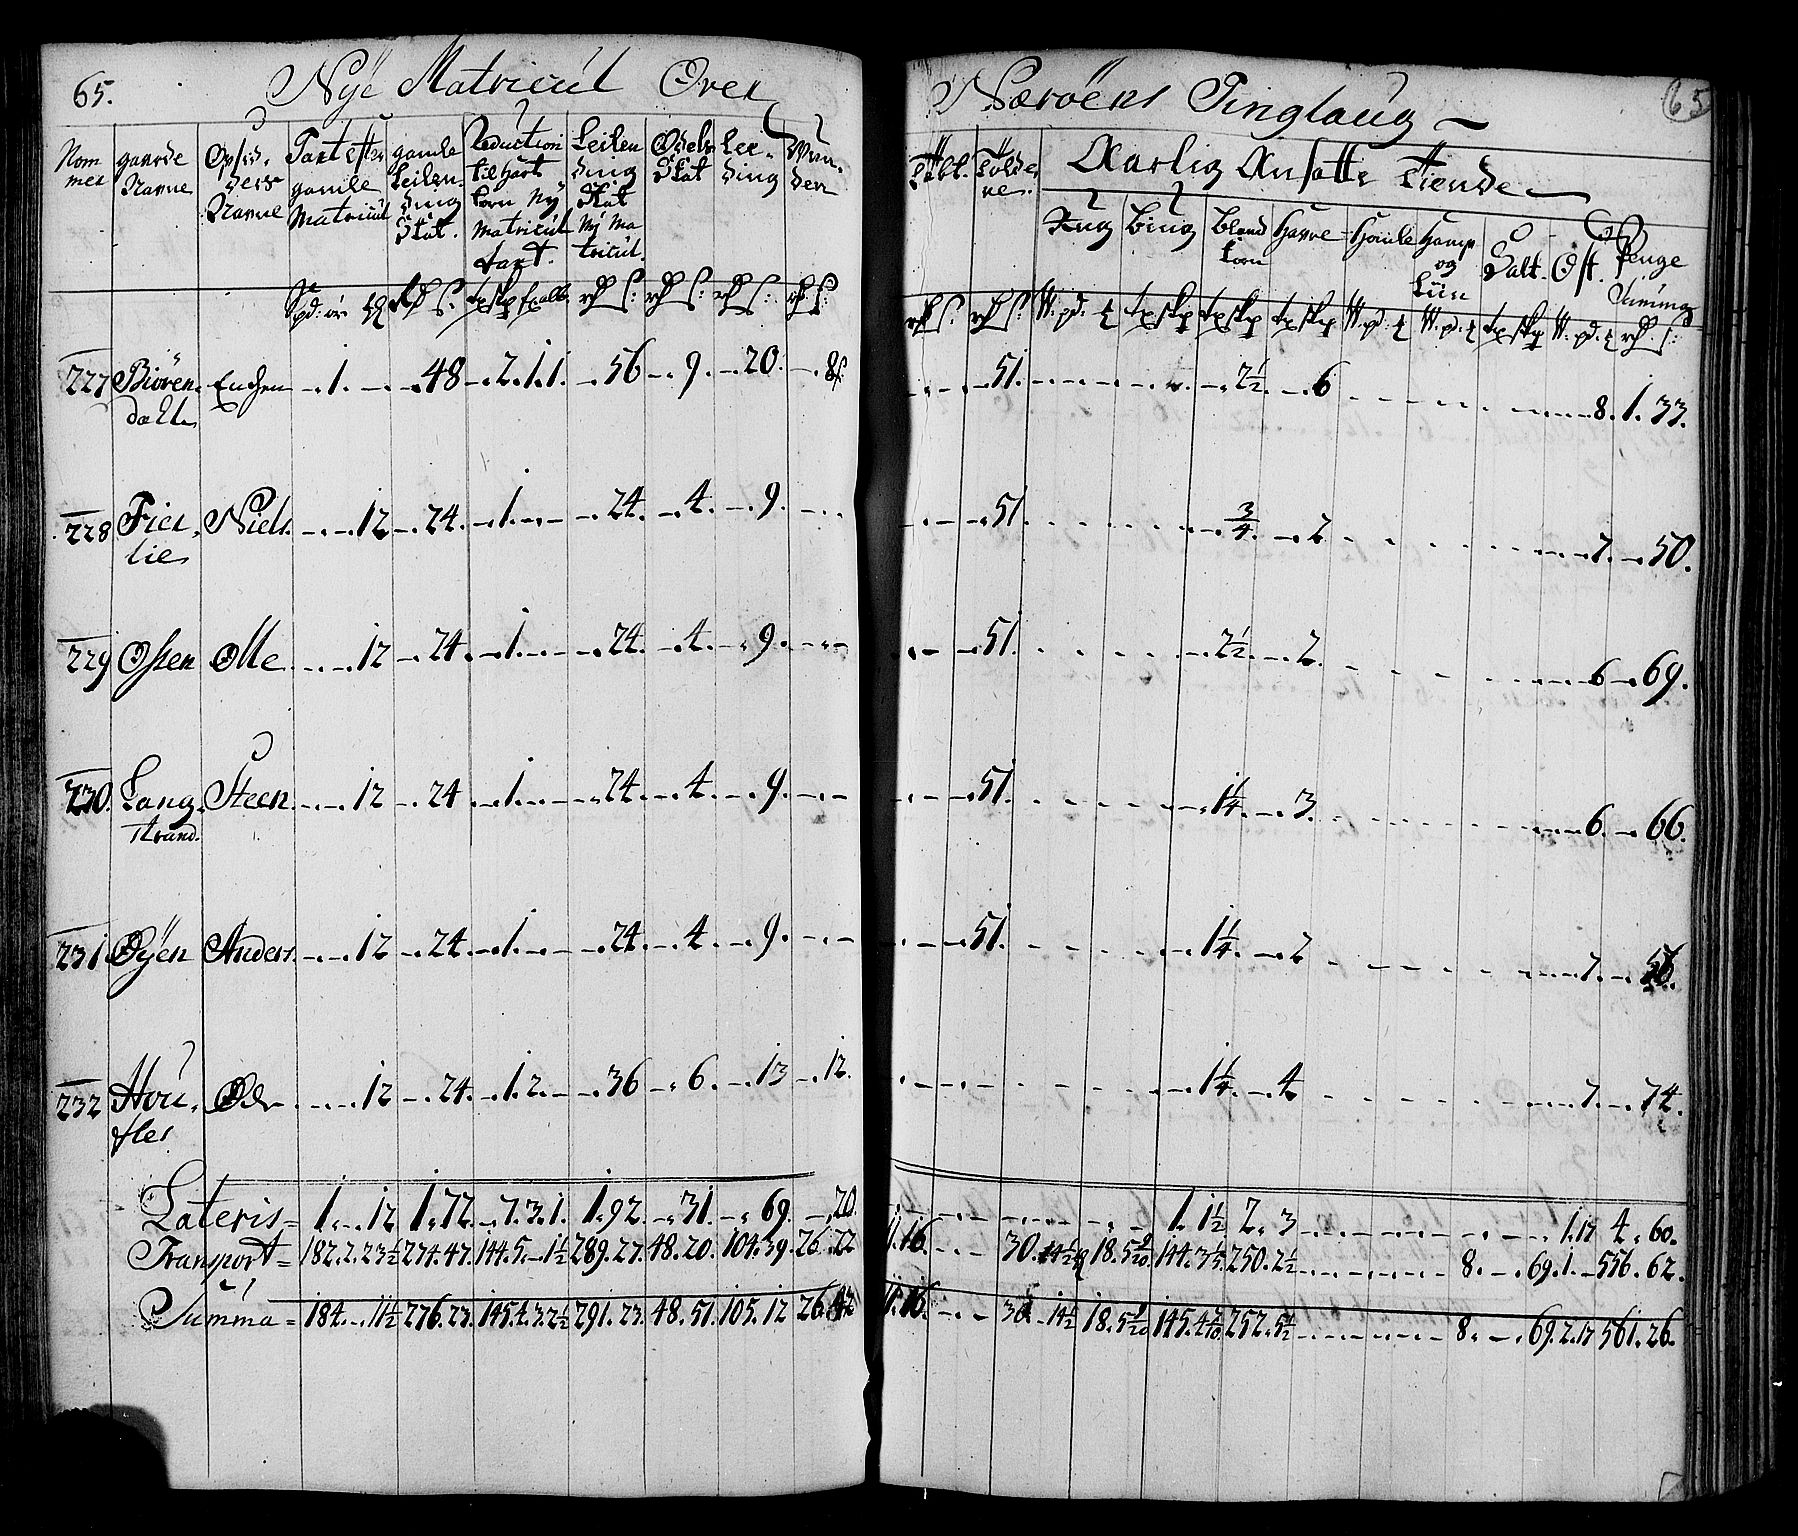 65. Nÿe Matricul Over Nærøens Tinglaug 65
Nom mer
gaarde Navne
Opsid. ders Navne
Taxt efter gamle Matricul
gamle Leilen ding Skat.
Reduction til hart korn Nÿ Matricul taxt.
Leilen ding Skat Nÿ Ma tricul.
Odels Skat
Lee- ding
Aarlig Ansatte Tiende
Rug Biug Bland korn Havre Homle Hamp og Liin Salt. Ost. Penge
227 Biören- dahl Endsen 1. 48 2.1.1. 56 9. 20. 8 51. 2½ 6 8. 1. 33.
228 Fier- lie Niels. 12 24. 1. 24. 4. 9. 51. ¾. 2 7. 50.
229 Osen Olle 12 24. 1. 24. 4. 9. 51. 2½. 2. 6 69.
230. Lang- strand. Steen 12 24 1. 24. 4. 9. 51. 1¼. 3. 6. 66.
231. Öÿen Anders. 12 24. 1. 24. 4. 9. 51. 1¼. 2 7.
232 Hou- Odr 12 24. 1.2. 36 6. 13 12. 1¼. 4 7. 74.
Lateris = 1. 12 1.72. 7.3.1. 1.92. 31. 69. 20. 1. 1½ 2. 3 1.17 4. 60.
Transport = 182.2.23½ 274.47. 144.5. 1½ 289.27. 48.20. 104.39. 26.22 11.16. 30. 14½ 144.3 250.2½ 8. 69.1. 556.62.
Summa = 184. 11½ 276.23. 145.4.3.2½ 291.23. 48.51. 105.12 26.42 11.16. 30. 14½ 252.5½ 8. 69.2.17 561.26.